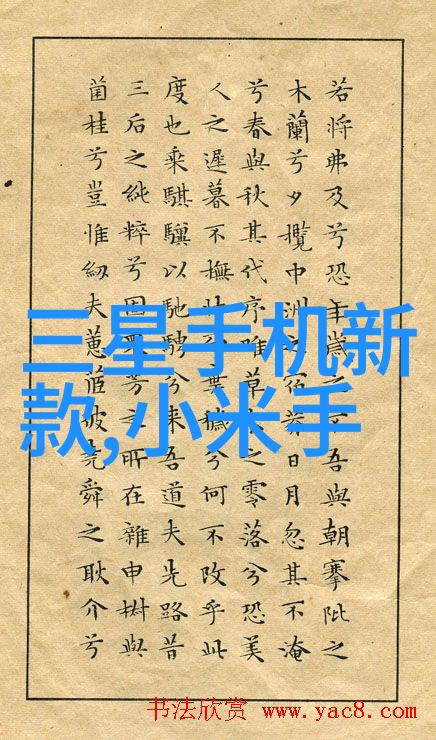 若將弗及兮恐年歲之吾與朝搴阰之
木蘭兮夕攬中洲宿莽日月忽其不淹
兮春與秋其代序唯草之零落兮恐美
人之遲暮不撫壯棄穢兮何不改乎此
度也乘騏驥以馳騁兮來吾道夫先路昔
三后之純粹兮固眾芳之所在雜申椒與
菌桂兮豈惟紉夫蕙茝彼堯舜之耿介兮
三星手机新
款,小米手
书法欣赏 www.yac8.com